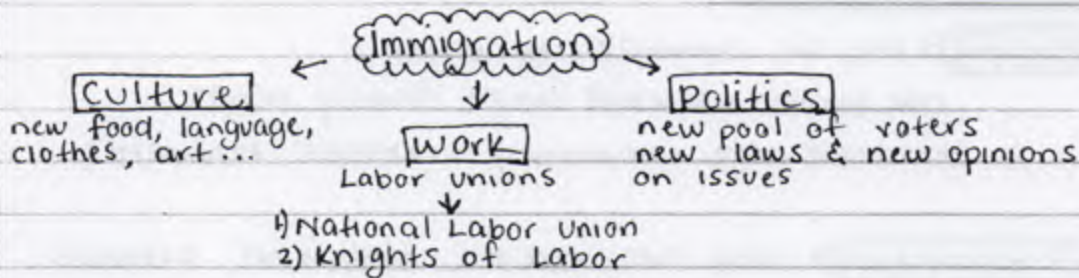 Immigration
Culture
new food, language,
clothes, art...
Work
Labor unions
1) National Labor union
2) Knights of Labor
Politics
new pool of voters
new laws & new opinions
on issues